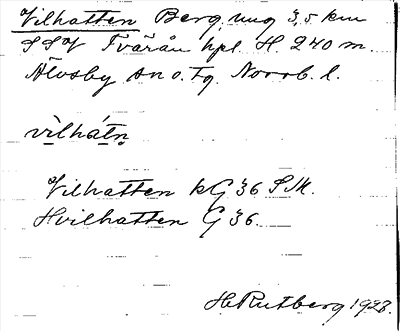 Vilhatten Berg, ung 3,5 km
SSV Tvärån hpl. H. 240 m.
Älvsby sn o. tg. Norrb. l.
vìlhát̄n̥
Vilhatten kG 36 SM.
Hvilhatten G 36.
H. Rutberg 1928.